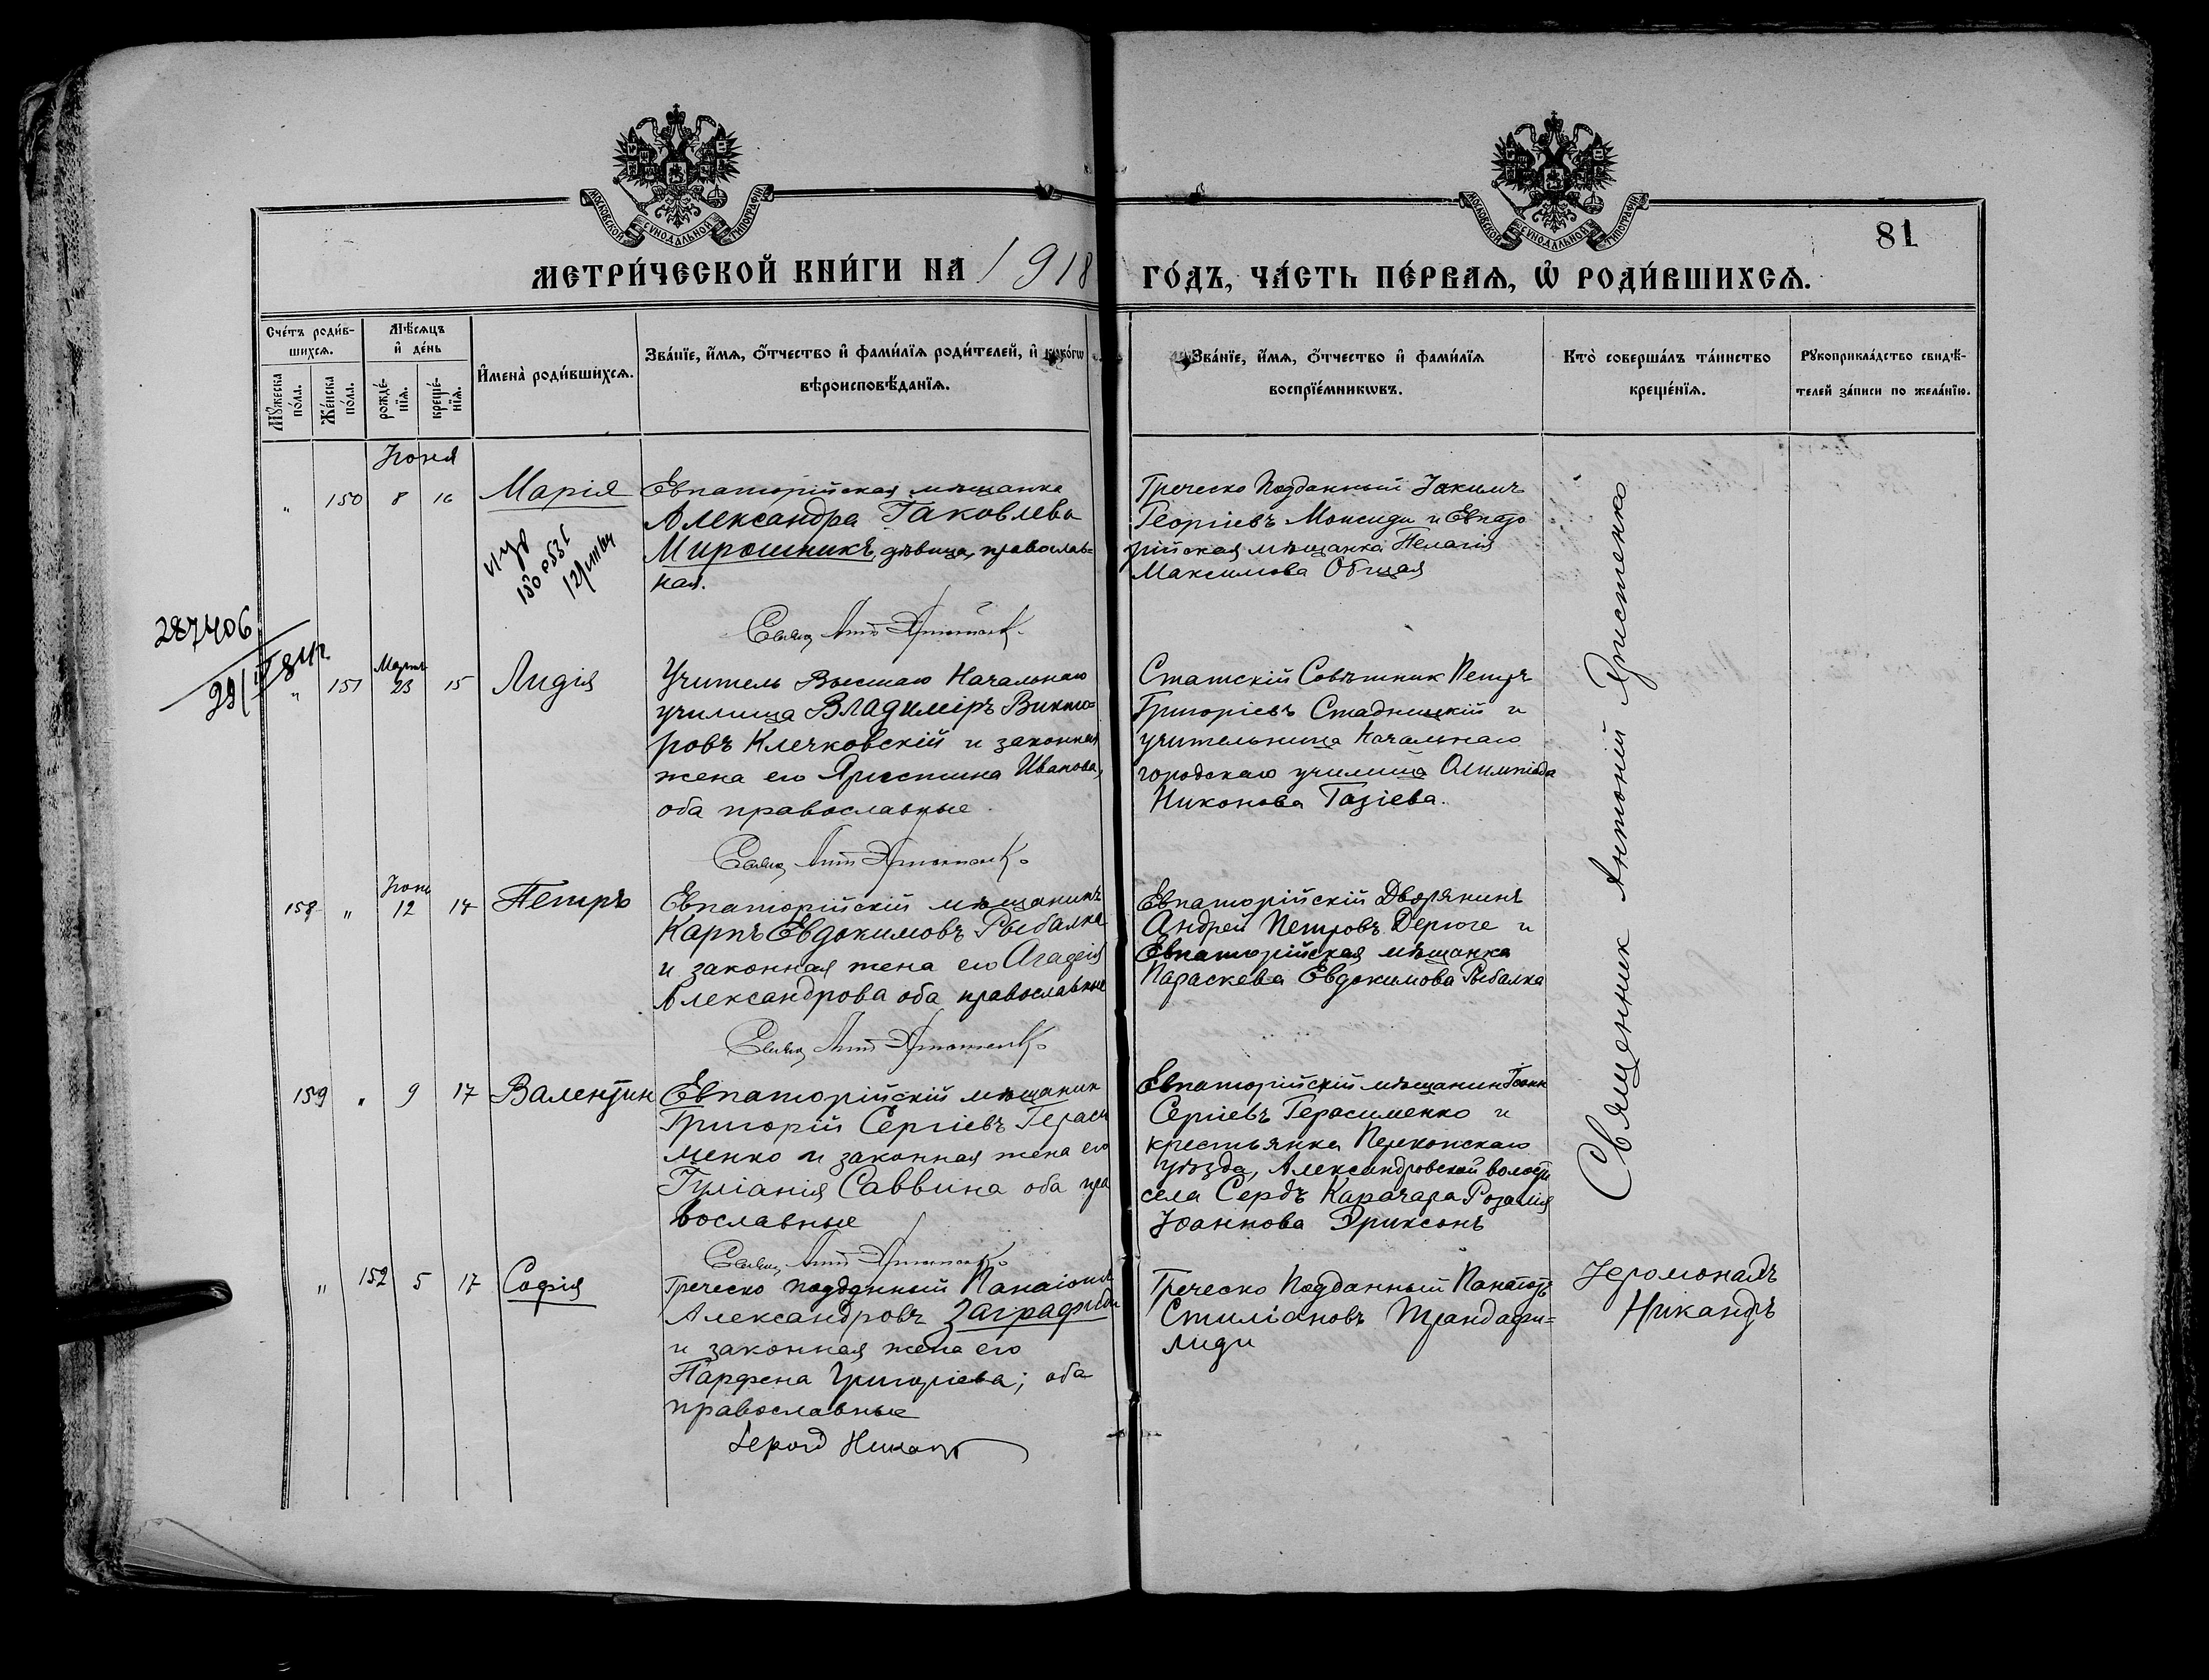 МОСКОВСКОЙ СУНОДАЛЬНОЙ ТИПОГРАФІИ
МОСКОВСКОЙ СУНОДАЛЬНОЙ ТИПОГРАФІИ
81
МЕТРИ́ЧЕСКОЙ КНИ́ГИ НА 1918
ГО́ДЪ, ЧА́СТЬ ПЕ́РВАѦ, Ѽ РОДИ́ВШИХСѦ.
Сче́тъ роди́в-
шихсѧ.
Мꙋ́жеска по́ла.
Же́нска по́ла.
Мѣ́сѧцъ
и҆ де́нь
рожде́-
нїѧ.
креще́-
нїѧ.
И҆мена̀ роди́вшихсѧ.
Зва́нїе, и҆́мѧ, ѻ҆́тчество и҆ фами́лїѧ роди́телей, и҆ како́гѡ
вѣроисповѣ́данїѧ.
Зва́нїе, и҆́мѧ, ѻ҆́тчество и҆ фами́лїѧ
воспрїе́мникѡвъ.
Кто̀ соверша́лъ та́инство
креще́нїѧ.
Рꙋкоприкла́дство свидѣ́-
телей за́писи по жела́нїю.
Іюня
" 150 8 16 Марія
Евпаторійская мѣщанка
Александра Іаковлева
Мирошникъ, дѣвица, православ=
ная.
Греческо Подданный Іакимъ
Георгіевъ Моисиди и Евпато
рійская мѣщанка Пелагія
Максимова Общая
287406
" 151 Марта 23 15 Лидія
Учитель Высшаго Начальнаго
училища Владиміръ Викто=
ровъ Клечковскій и законная
жена его Христина Иванова,
оба православные.
Статскій Совѣтник Петръ
Григоріевъ Стадницкій и
учительница Начальнаго
городскаго училища Олимпіада
Никонова Газіева.
158 " Іюня 12 14 Петръ
Евпаторійскій мѣщанинъ
Карпъ Евдокимовъ Рыбалка
и законная жена его Агафія
Александрова оба православные
Евпаторійскій Дворянинъ
Андрей Петровъ Дерюге и
Евпаторійская мѣщанка
Параскева Евдокимова Рыбалка
159 " 9 17 Валентин
Евпаторійскій мѣщанин
Григорій Сергіевъ Гераси
менко и законная жена его
Іуліанія Саввина оба пра
вославные
Евпаторійскій мѣщанин Іоанн
Сергіевъ Герасименко и
крестьянка Перекопскаго
уѣзда, Александровской волости
села Сердъ Карачара Розалія
Іоаннова Эриксонъ
Священник Антоній
" 152 5 17 Софія
Греческо подданный Панаіотъ
Александровъ Заграфиди
и законная жена его
Парфена Григоріева; оба
православные
Греческо Подданный Панаіотъ
Стиліановъ Трандафи=
лиди
Іеромонахъ
Никандръ